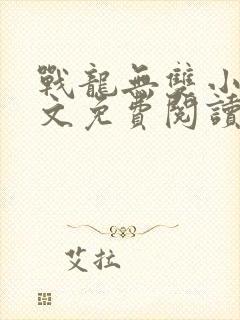 戰龍無雙小
文免費閱讀
艾拉